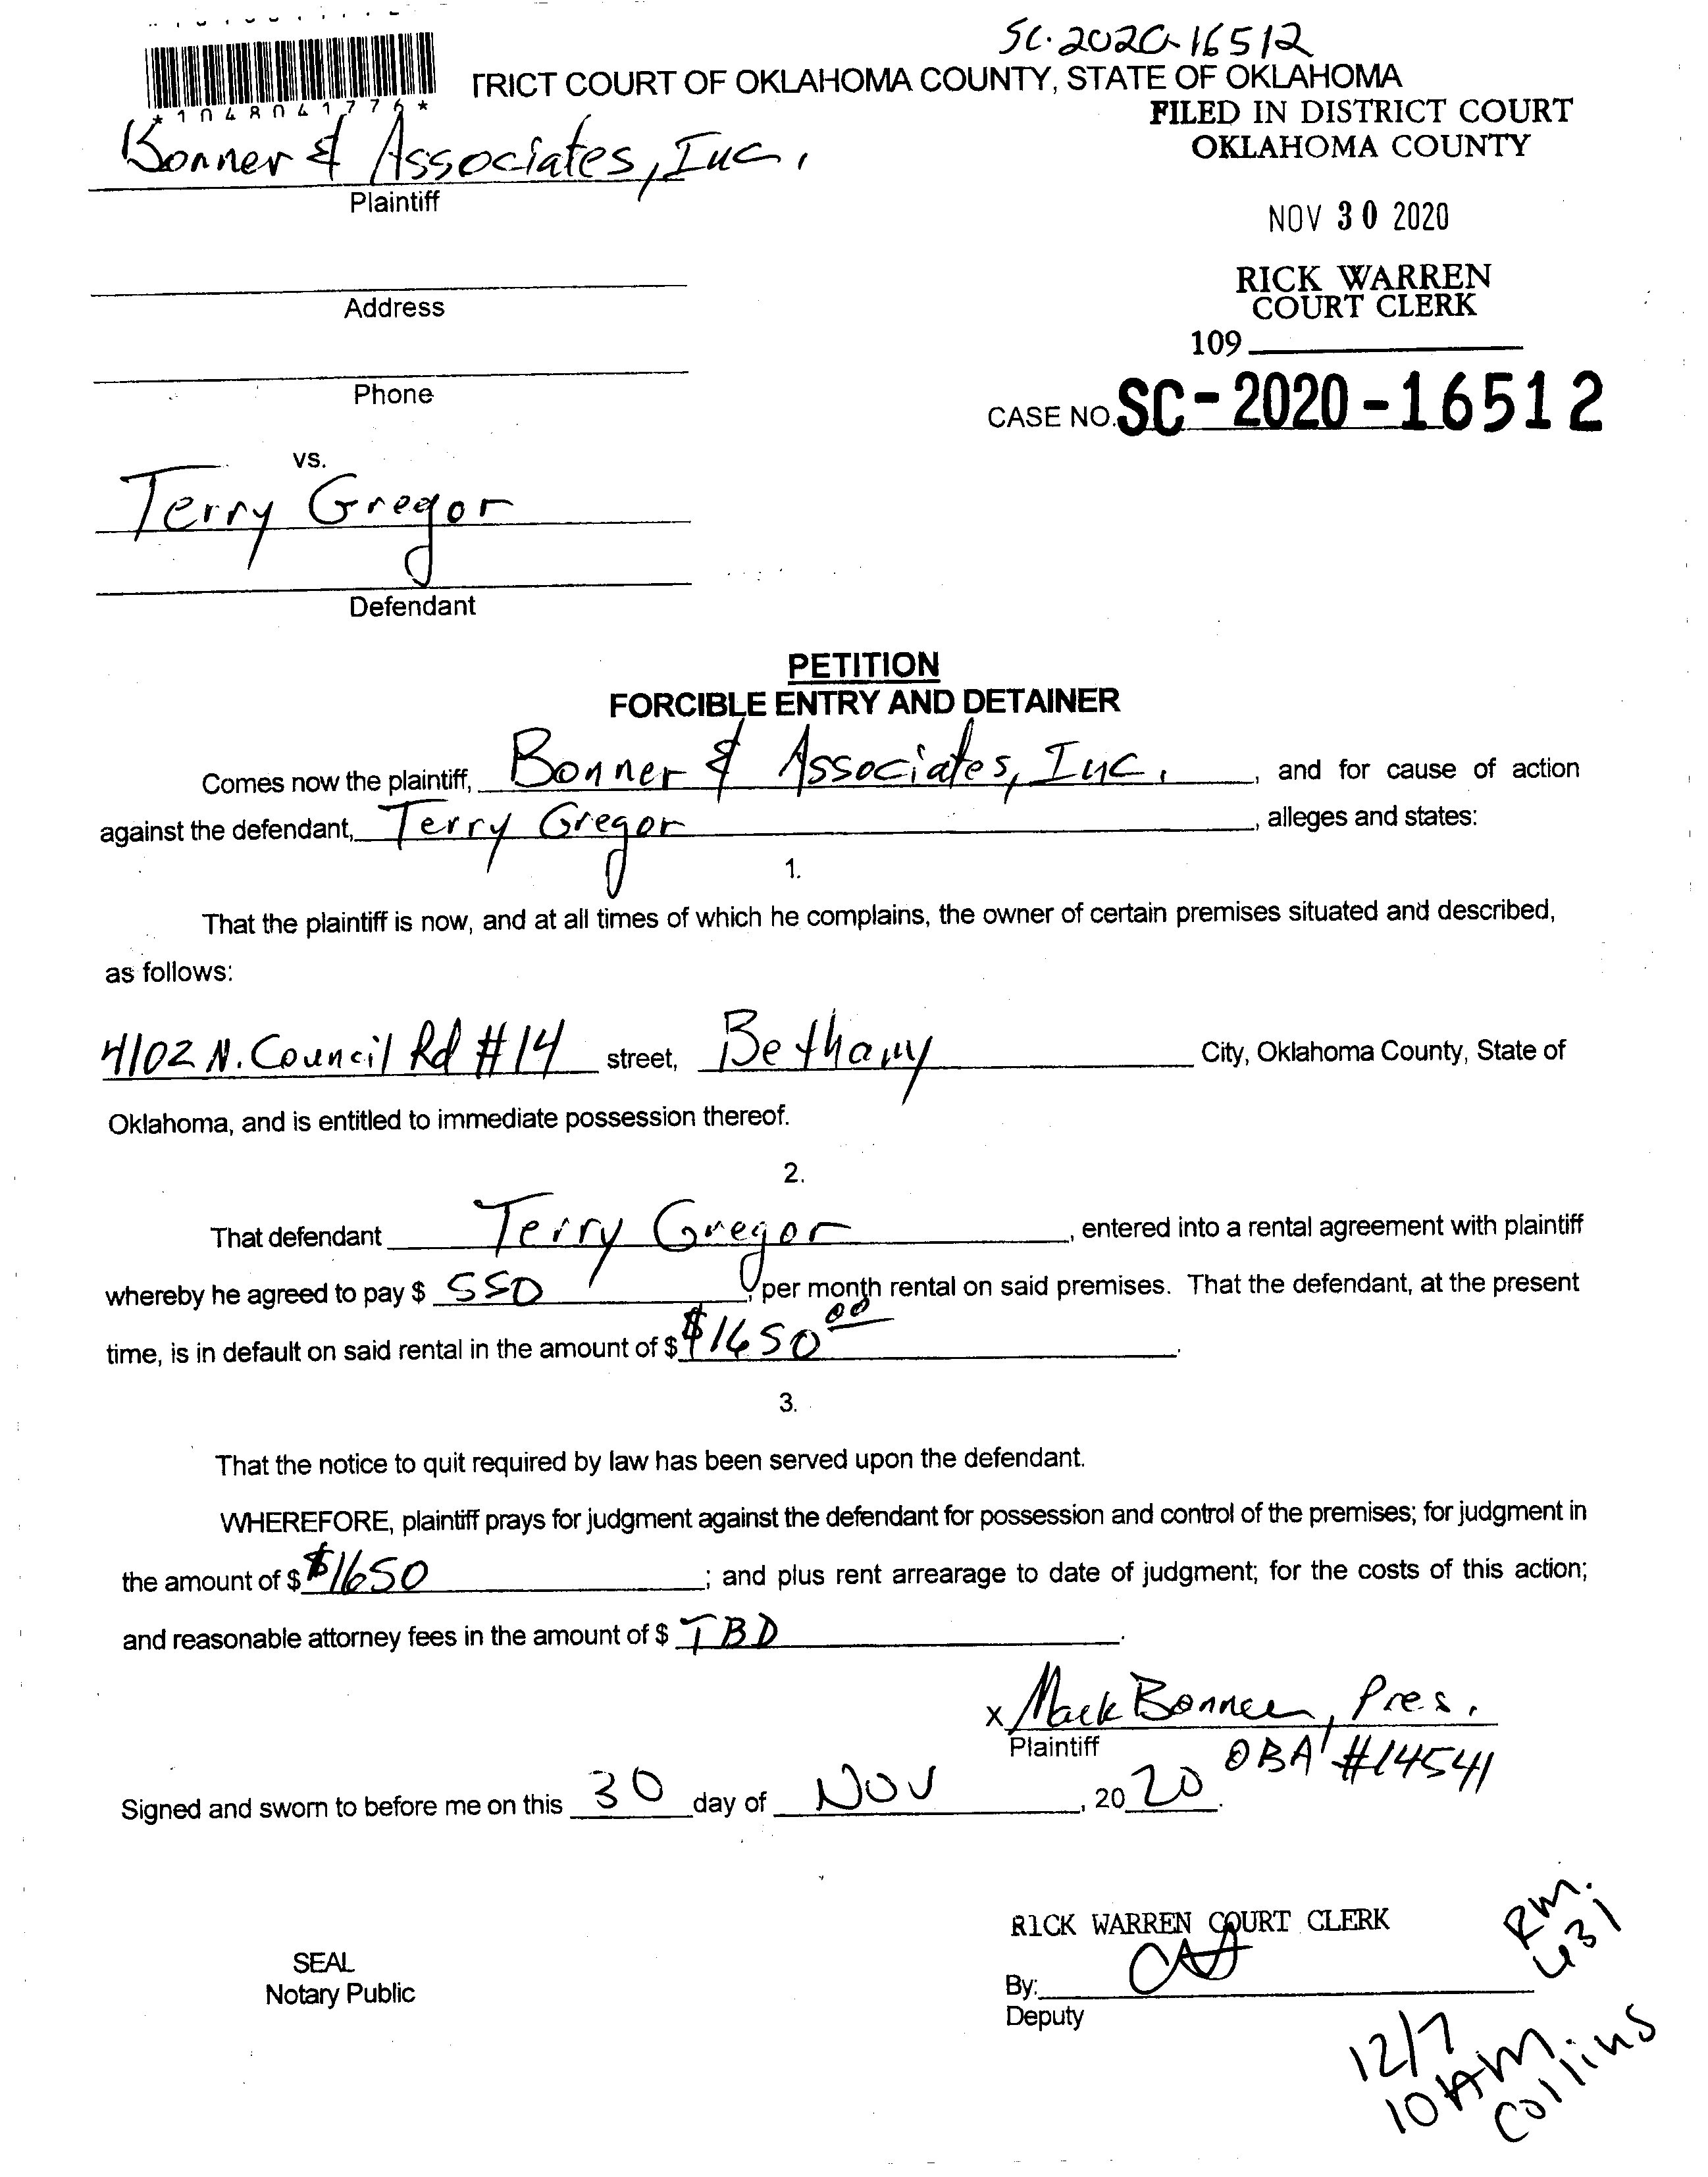 SC-2020-16512
TRICT COURT OF OKLAHOMA COUNTY, STATE OF OKLAHOMA
*1048041776*
FILED IN DISTRICT COURT
OKLAHOMA COUNTY
Bonner & Associates, Inc.
Plaintiff
NOV 30 2020
Address
RICK WARREN
COURT CLERK
109
Phone
CASE NO. SC-2020-16512
vs.
Terry Gregor
Defendant
PETITION
FORCIBLE ENTRY AND DETAINER
Comes now the plaintiff, Bonner & Associates, Inc., and for cause of action
against the defendant, Terry Gregor, alleges and states:
1.
That the plaintiff is now, and at all times of which he complains, the owner of certain premises situated and described,
as follows:
4102 N. Council Rd #14 street, Bethany City, Oklahoma County, State of
Oklahoma, and is entitled to immediate possession thereof.
2.
That defendant Terry Gregor, entered into a rental agreement with plaintiff
whereby he agreed to pay $ 550, per month rental on said premises. That the defendant, at the present
time, is in default on said rental in the amount of $ $1650 00.
3.
That the notice to quit required by law has been served upon the defendant.
WHEREFORE, plaintiff prays for judgment against the defendant for possession and control of the premises; for judgment in
the amount of $ $1650; and plus rent arrearage to date of judgment; for the costs of this action;
and reasonable attorney fees in the amount of $ TBD.
x Mack Bonner, Pres.
Plaintiff OBA #14541
Signed and sworn to before me on this 30 day of Nov, 2020.
RICK WARREN COURT CLERK
SEAL
Notary Public
By:
Deputy
Rm.
431
12/7
10 AM
Collins